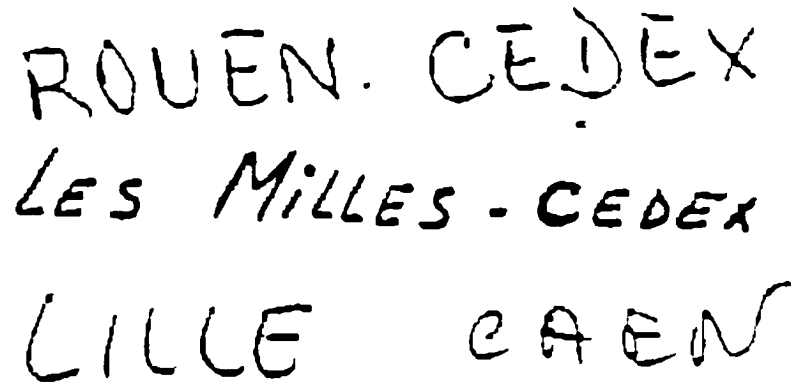 ROUEN. CEDEX
LES MiLLES - CEDEX
LILLE CAEN